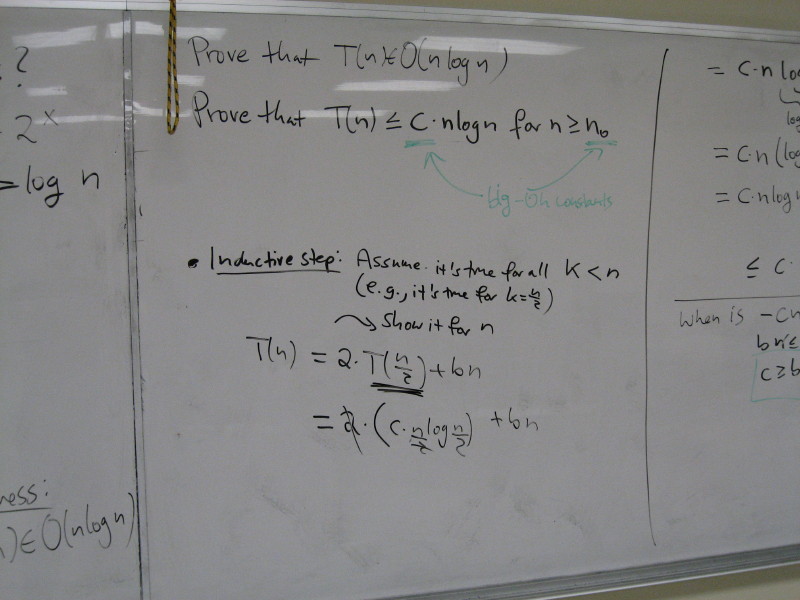 ?
2^x
= log n
ness:
) ∈ O(n log n)
Prove that T(n) ∈ O(n log n)
Prove that T(n) ≤ c · n log n for n ≥ n₀
big-Oh constants
• Inductive step: Assume it's true for all k < n
(e.g., it's true for k = n/2)
Show it for n
T(n) = 2 · T(n/2) + bn
= 2 · (c · n/2 log n/2) + bn
= c · n log
log
= c · n (log
= c · n log n
≤ c ·
When is - cn
bn ≤
c ≥ b